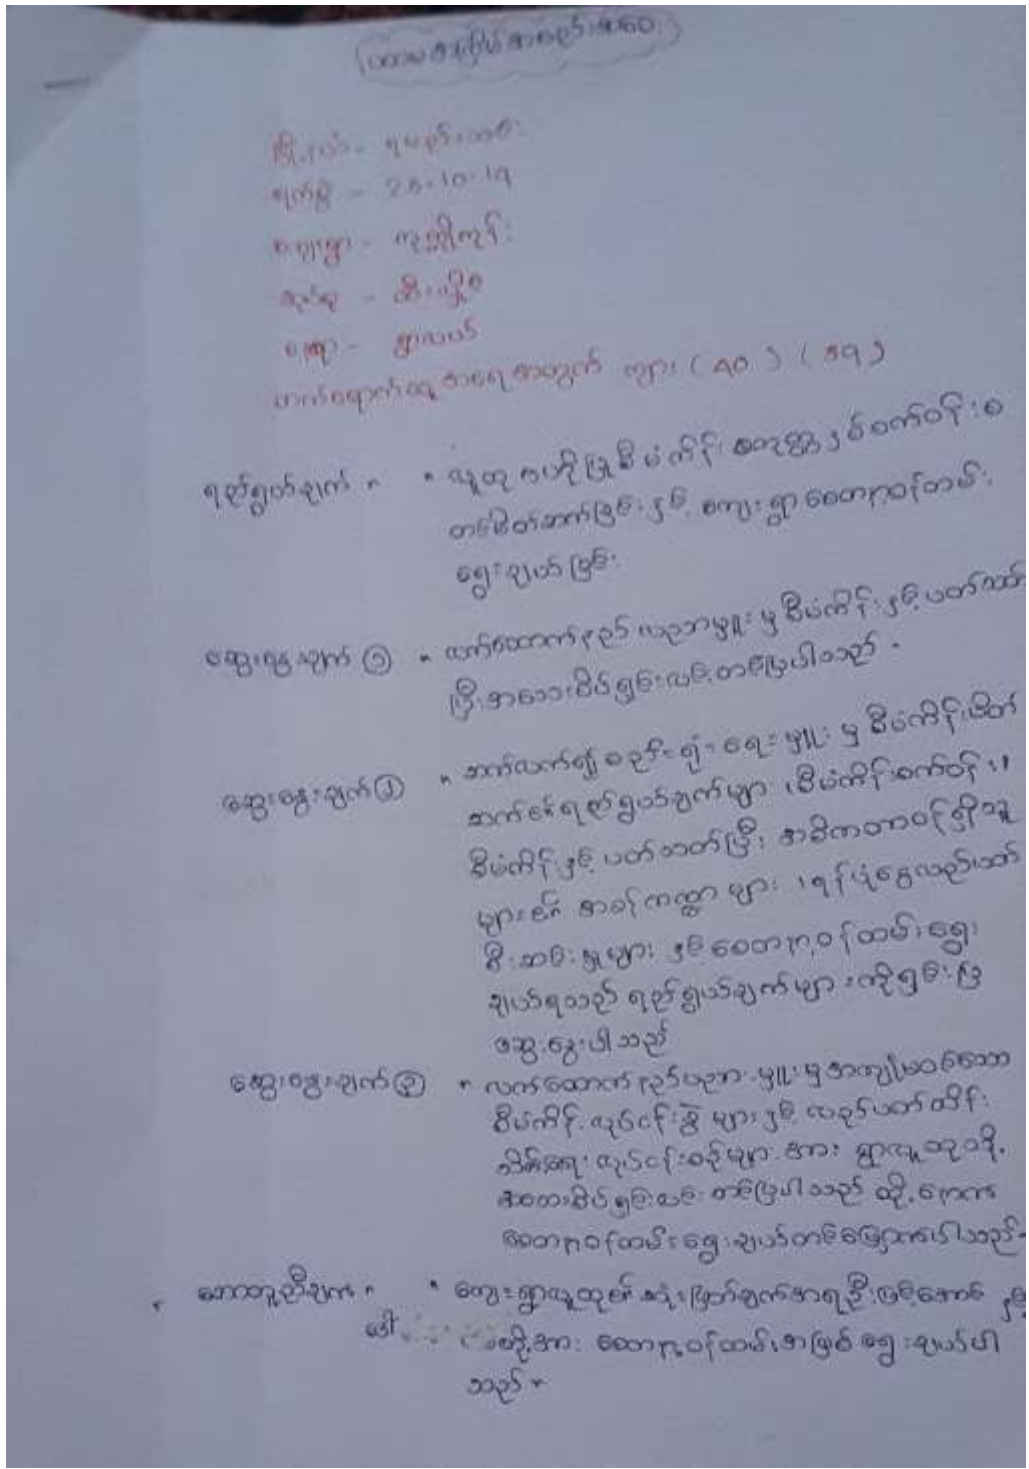 ပထမအကြိမ်အစည်းအဝေး
မြို့နယ် - ရမည်းသင်း
ရက်စွဲ - 25.10.19
ကျေးရွာ - ကုက္ကိုကုန်း
အုပ်စု -
နေရာ - ရွာလယ်
တက်ရောက်သူအရေအတွက် ကျား (၅၀) ( ၅၅)
ရည်ရွယ်ချက် ။ ။ လူထုဗဟိုပြုစီမံကိန်း စက်ဝန်းစ
တစ်ဆက်ခြင်းနှင့် ကျေးရွာစေတနာ့ဝန်ထမ်း
ရွေးချယ်ခြင်း
ဆွေးနွေးချက် (၁) ။ လက်ထောက်နည်းပညာမှူးမှ စီမံကိန်းနှင့်ပတ်သတ်
ပြီးအသေးစိတ်ရှင်းလင်းတင်ပြပါသည်။
ဆွေးနွေးချက် (၂) ။ ဆက်လက်၍ စည်းရုံးရေးမှူးမှ စီမံကိန်းမိတ်
ဆက်၏ရည်ရွယ်ချက်များ ၊ စီမံကိန်းစက်ဝန်း ၊
စီမံကိန်းနှင့် ပတ်သတ်ပြီး အဓိကတာဝန်ရှိသူ
များ၏ အခန်းကဏ္ဍများ ၊ ရန်ပုံငွေလည်ပတ်
စီးဆင်းမှုများ နှင့် စေတနာ့ဝန်ထမ်းရွေး
ချယ်ရသည့် ရည်ရွယ်ချက်များကိုရှင်းပြ
ဆွေးနွေးပါသည်
ဆွေးနွေးချက် (၃) ။ လက်ထောက်နည်းပညာမှူးမှ အကျုံးဝင်သော
စီမံကိန်းလုပ်ငန်းခွဲများနှင့် လည်ပတ်ထိန်း
သိမ်းရေး လုပ်ငန်းစဉ်များအား ရွာလူထုသို့
အသေးစိတ်ရှင်းလင်းတင်ပြပါသည် ထို့နောက်
စေတနာ့ဝန်ထမ်းရွေးချယ်တင်မြှောက်ပါသည်။
သဘောတူညီချက် ။ ။ ကျေးရွာလူထု၏ ဆုံးဖြတ်ချက်အရ ဦးမြင့်အောင် နှင့်
ဒေါ် တို့အား စေတနာ့ဝန်ထမ်းအဖြစ် ရွေးချယ်ပါ
သည်။